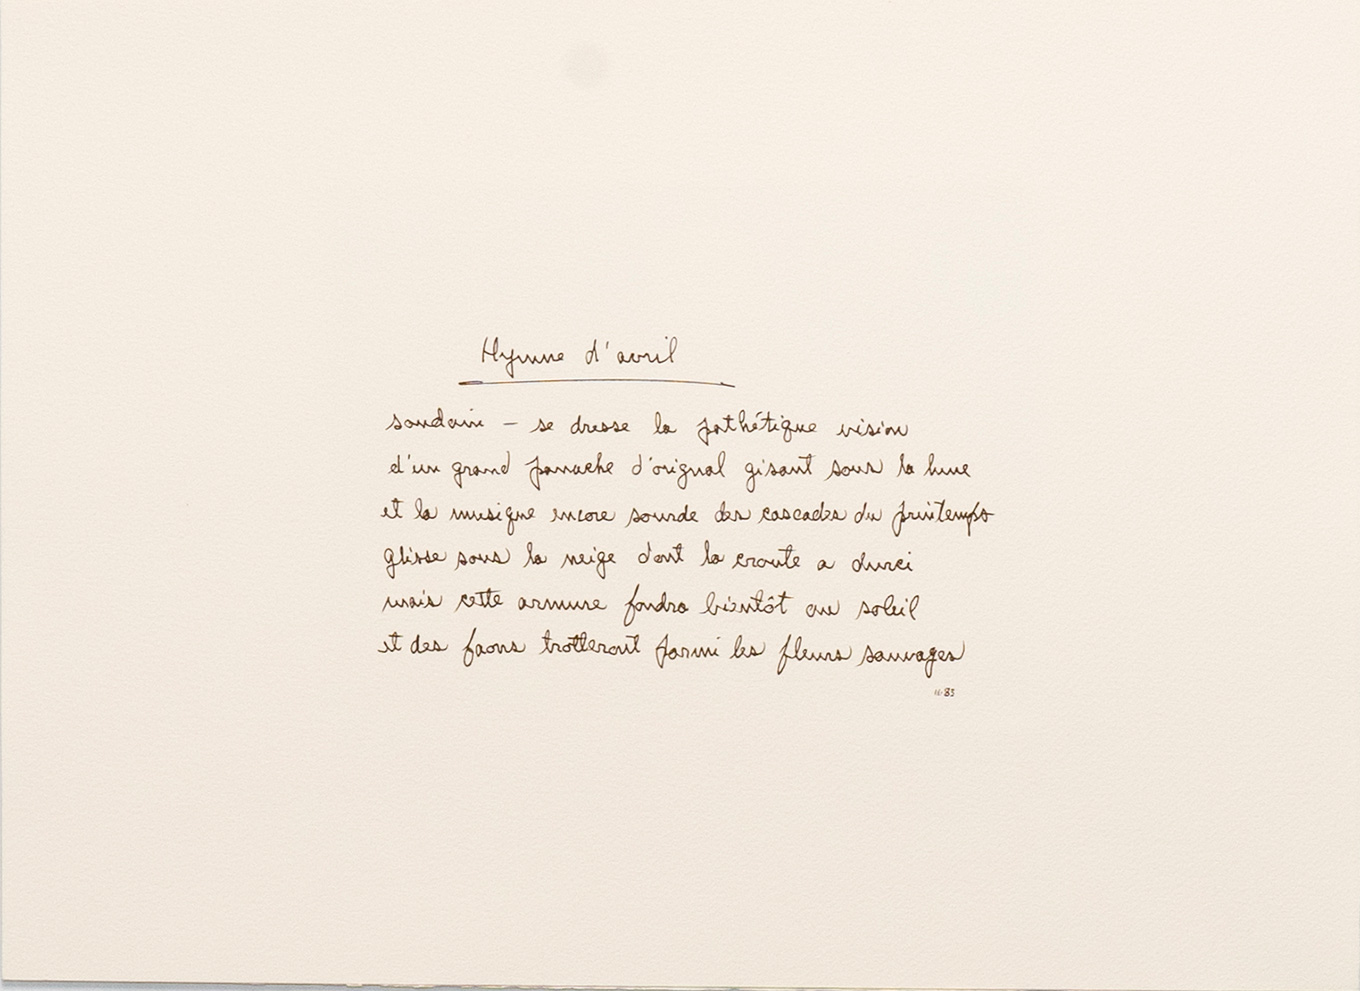 Hymne d'avril
soudain – se dresse la pathétique vision
d'un grand panache d'orignal gisant sous la lune
et la musique encore sourde des cascades du printemps
glisse sous la neige dont la croute a durci
mais cette armure fondra bientôt au soleil
et des faons trotteront parmi les fleurs sauvages
83